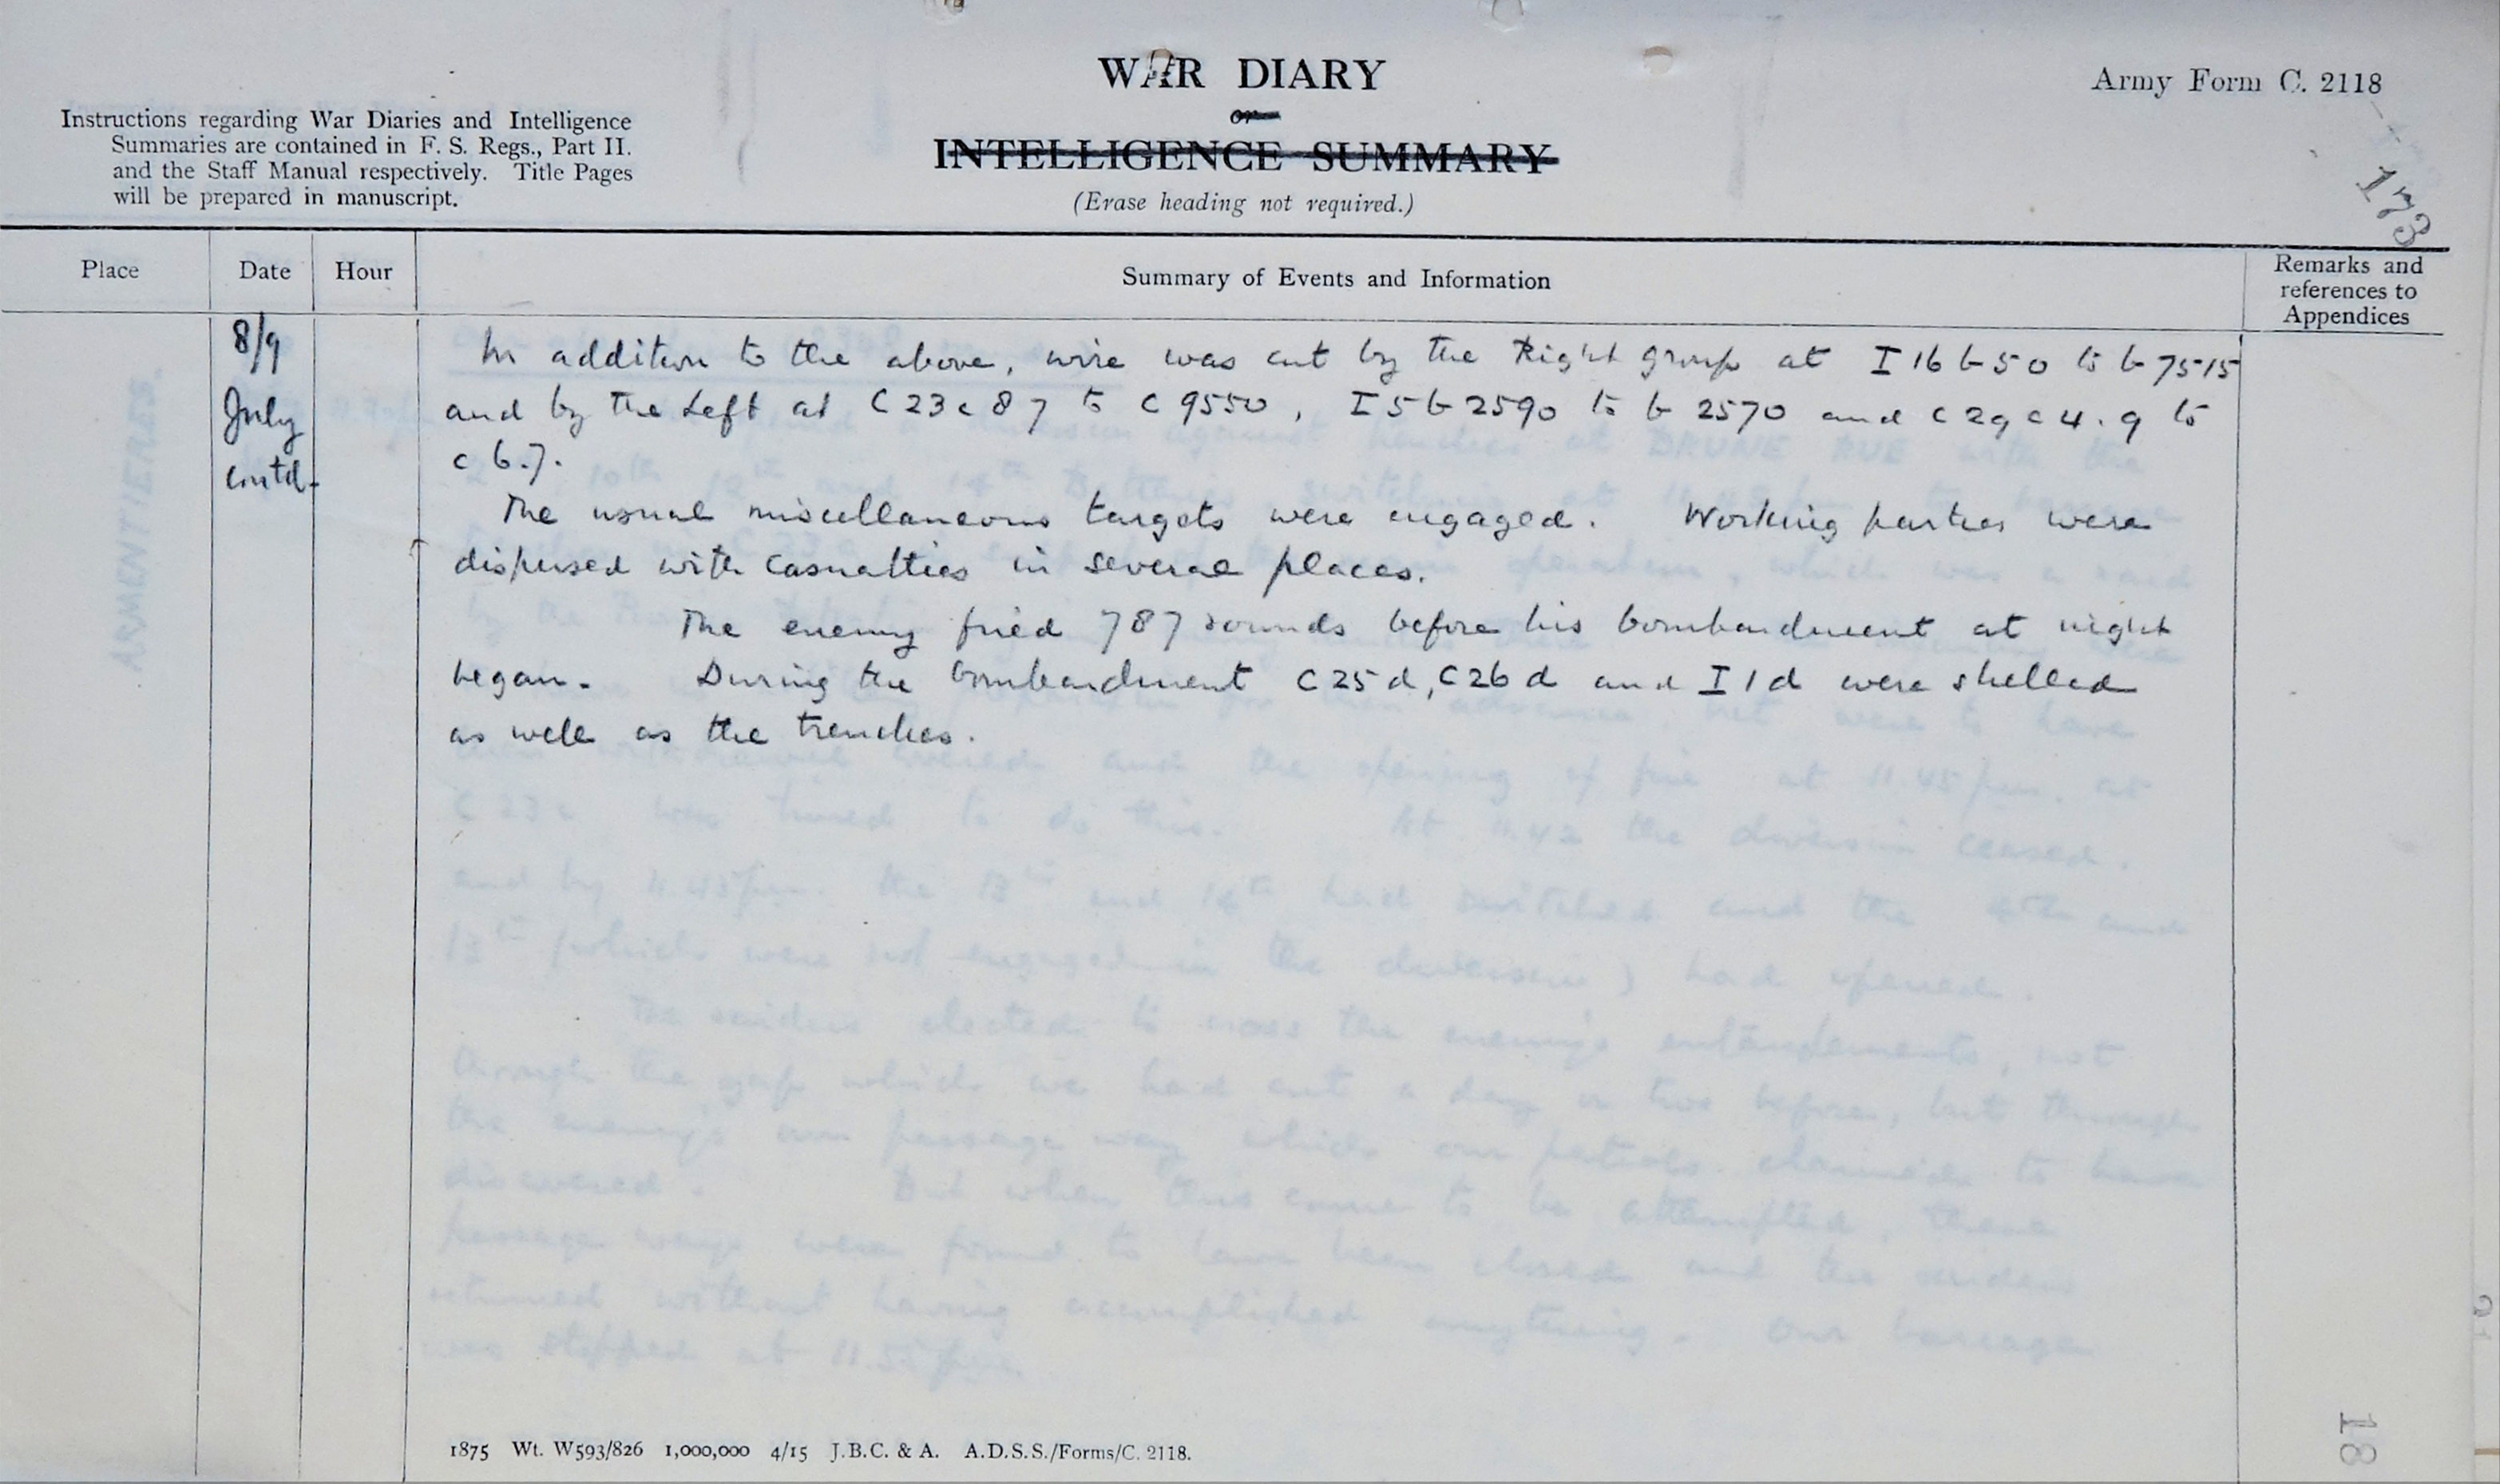 WAR DIARY
or
INTELLIGENCE SUMMARY
(Erase heading not required.)
Army Form C. 2118
Instructions regarding War Diaries and Intelligence
Summaries are contained in F. S. Regs., Part II.
and the Staff Manual respectively. Title Pages
will be prepared in manuscript.
173
Place Date Hour Summary of Events and Information Remarks and references to Appendices
8/9
July
contd.
In addition to the above, wire was cut by the Right group at I 16 b 50 to b 7515
and by the Left at C 23 c 87 to c 9550, I 5 b 2590 to b 2570 and C 29 c 4.9 to
c 6.7.
The usual miscellaneous targets were engaged. Working parties were
dispersed with casualties in several places.
The enemy fired 787 rounds before his bombardment at night
began. During the bombardment C 25 d, C 26 d and I 1 d were shelled
as well as the trenches.
1875 Wt. W593/826 1,000,000 4/15 J.B.C. & A. A.D.S.S./Forms/C. 2118.
18